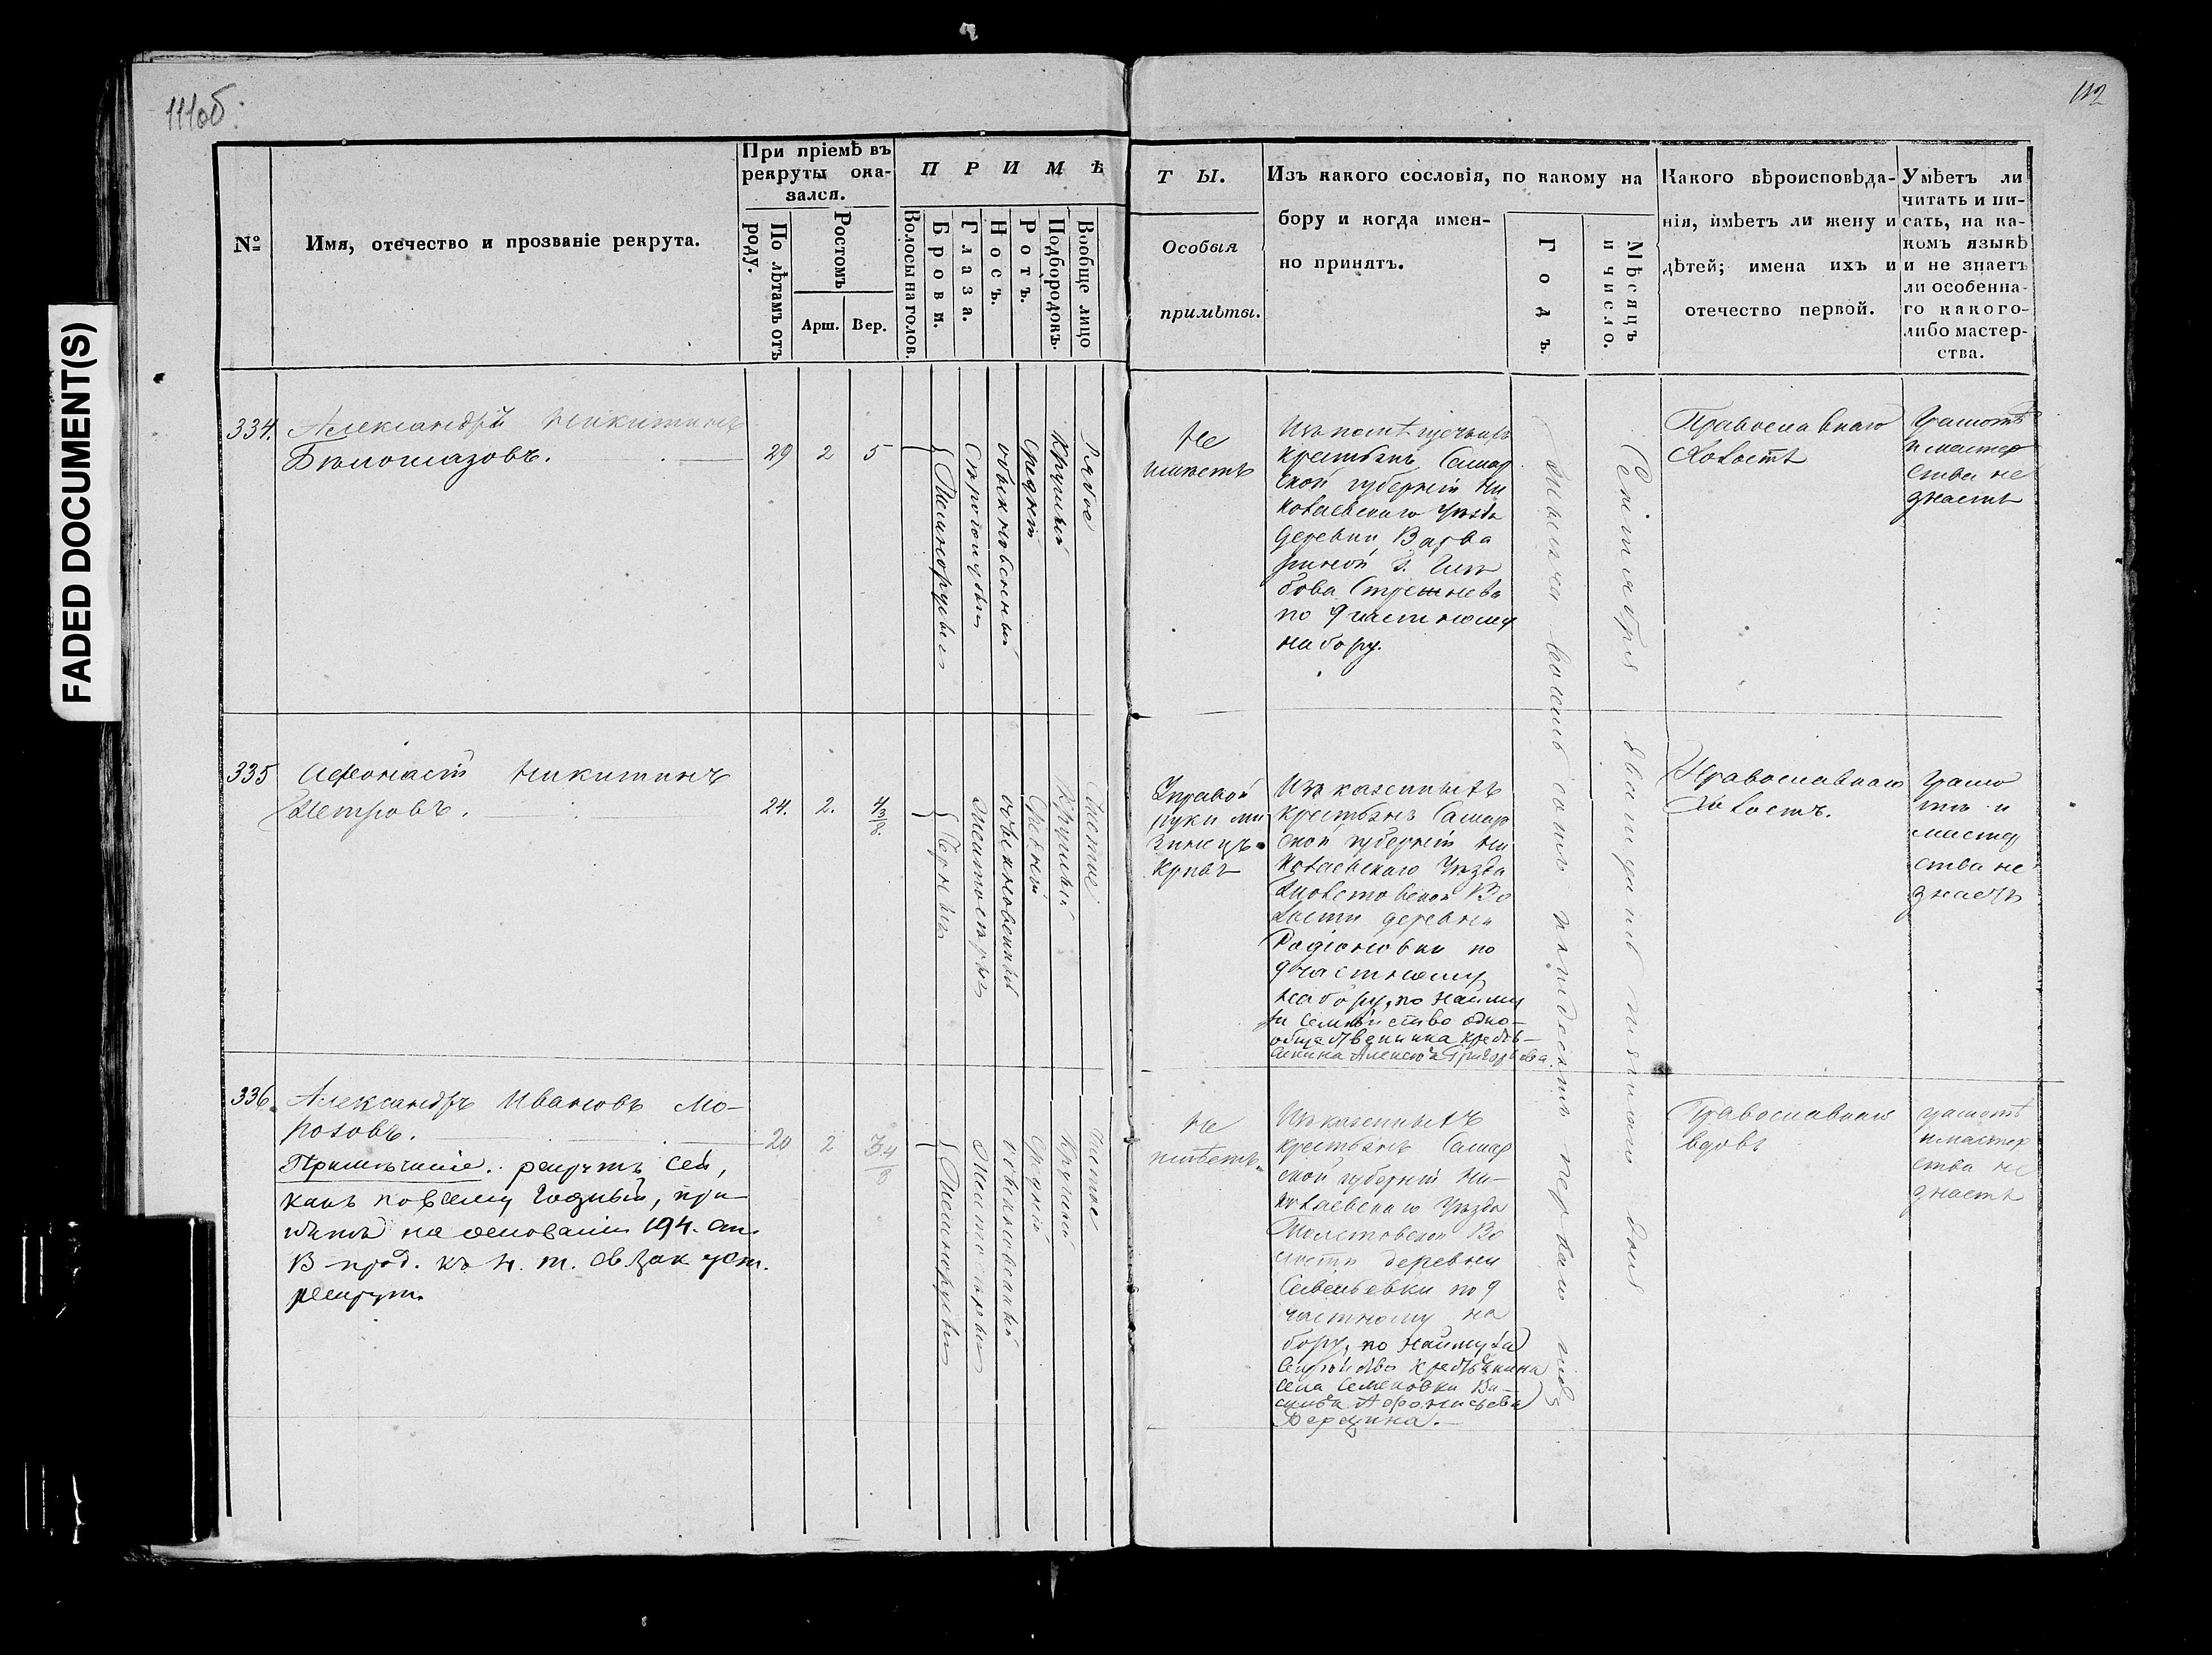 111об.
112
FADED DOCUMENT(S)
№
Имя, отечество и прозваніе рекрута.
При пріемѣ въ
рекруты ока-
зался.
По лѣтамъ отъ
роду.
Ростомъ
Арш.
Вер.
ПРИМѢ
Волосы на голов.
Брови.
Глаза.
Носъ.
Ротъ.
Подбородокъ.
Вообще лицо
ТЫ.
Особыя
примѣты.
Изъ какого сословія, по какому на
бору и когда имен-
но принятъ.
Годъ.
Мѣсяцъ
и число.
Какого вѣроисповѣда-
нія, имѣетъ ли жену и
дѣтей; имена ихъ и
отечество первой.
Умѣетъ ли
читать и пи-
сать, на ка-
комъ языкѣ
и не знаетъ
ли особенна-
го какого-
либо мастер-
ства.
334.
Александръ Никитинъ
Бѣлоглазовъ.
29
2
5
Темнорусыя
Сѣроголубыя
обыкновенный
Средній
Круглый
Рябое
Не
имѣетъ
крестьянъ Самар
ской губерніи Ни
колаевскаго Уѣзда
деревни Варва
риной Г. Глѣ
бова Стрешнева
по 9 частному
набору.
Тысяча восемь сотъ пятьдесятъ перваго года
Сентября двадцать пятаго дня
Православнаго
Холостъ
Грамотѣ
и мастер
ства не
знаетъ
335
Афонасій Никитинъ
Петровъ.
24.
2.
4
3
8.
Черныя
Желтосѣрыя
обыкновенный
Средній
Круглый
Чистое
У правой
руки ми
зинецъ
кривъ
Изъ казенныхъ
крестьянъ Самар
ской губерніи Ни
колаевскаго Уѣзда
Во
лости деревни
Родіоновки по
9 частному
набору, по найму
за семѣйство одно-
общественника кресть-
янина Алексѣя Григорьева.
Православнаго
Холостъ.
грамо
тѣ и
мастер
ства не
знаетъ
336.
Александръ Ивановъ Мо-
розовъ.
20
2
3 4
8
Примѣчаніе. рекрутъ сей,
какъ по всему годный, при-
нятъ на основаніи 194. ст.
В прод. къ 4. т. св. зак. уст.
рекрут.
Темнорусыя
Желтосѣрыя
обыкновенный
Средній
Круглый
Чистое
Не
имѣетъ.
Изъ казенныхъ
крестьянъ Самар
ской губерніи Ни-
колаевскаго Уѣзда
Во
лости деревни
Савельевки по 9
частному на
бору, по найму за
семѣйство крестьянина
села Семеновки Ва-
силья Афонасьева
Православнаго
вдовъ
грамотѣ
и мастер
ства не
знаетъ